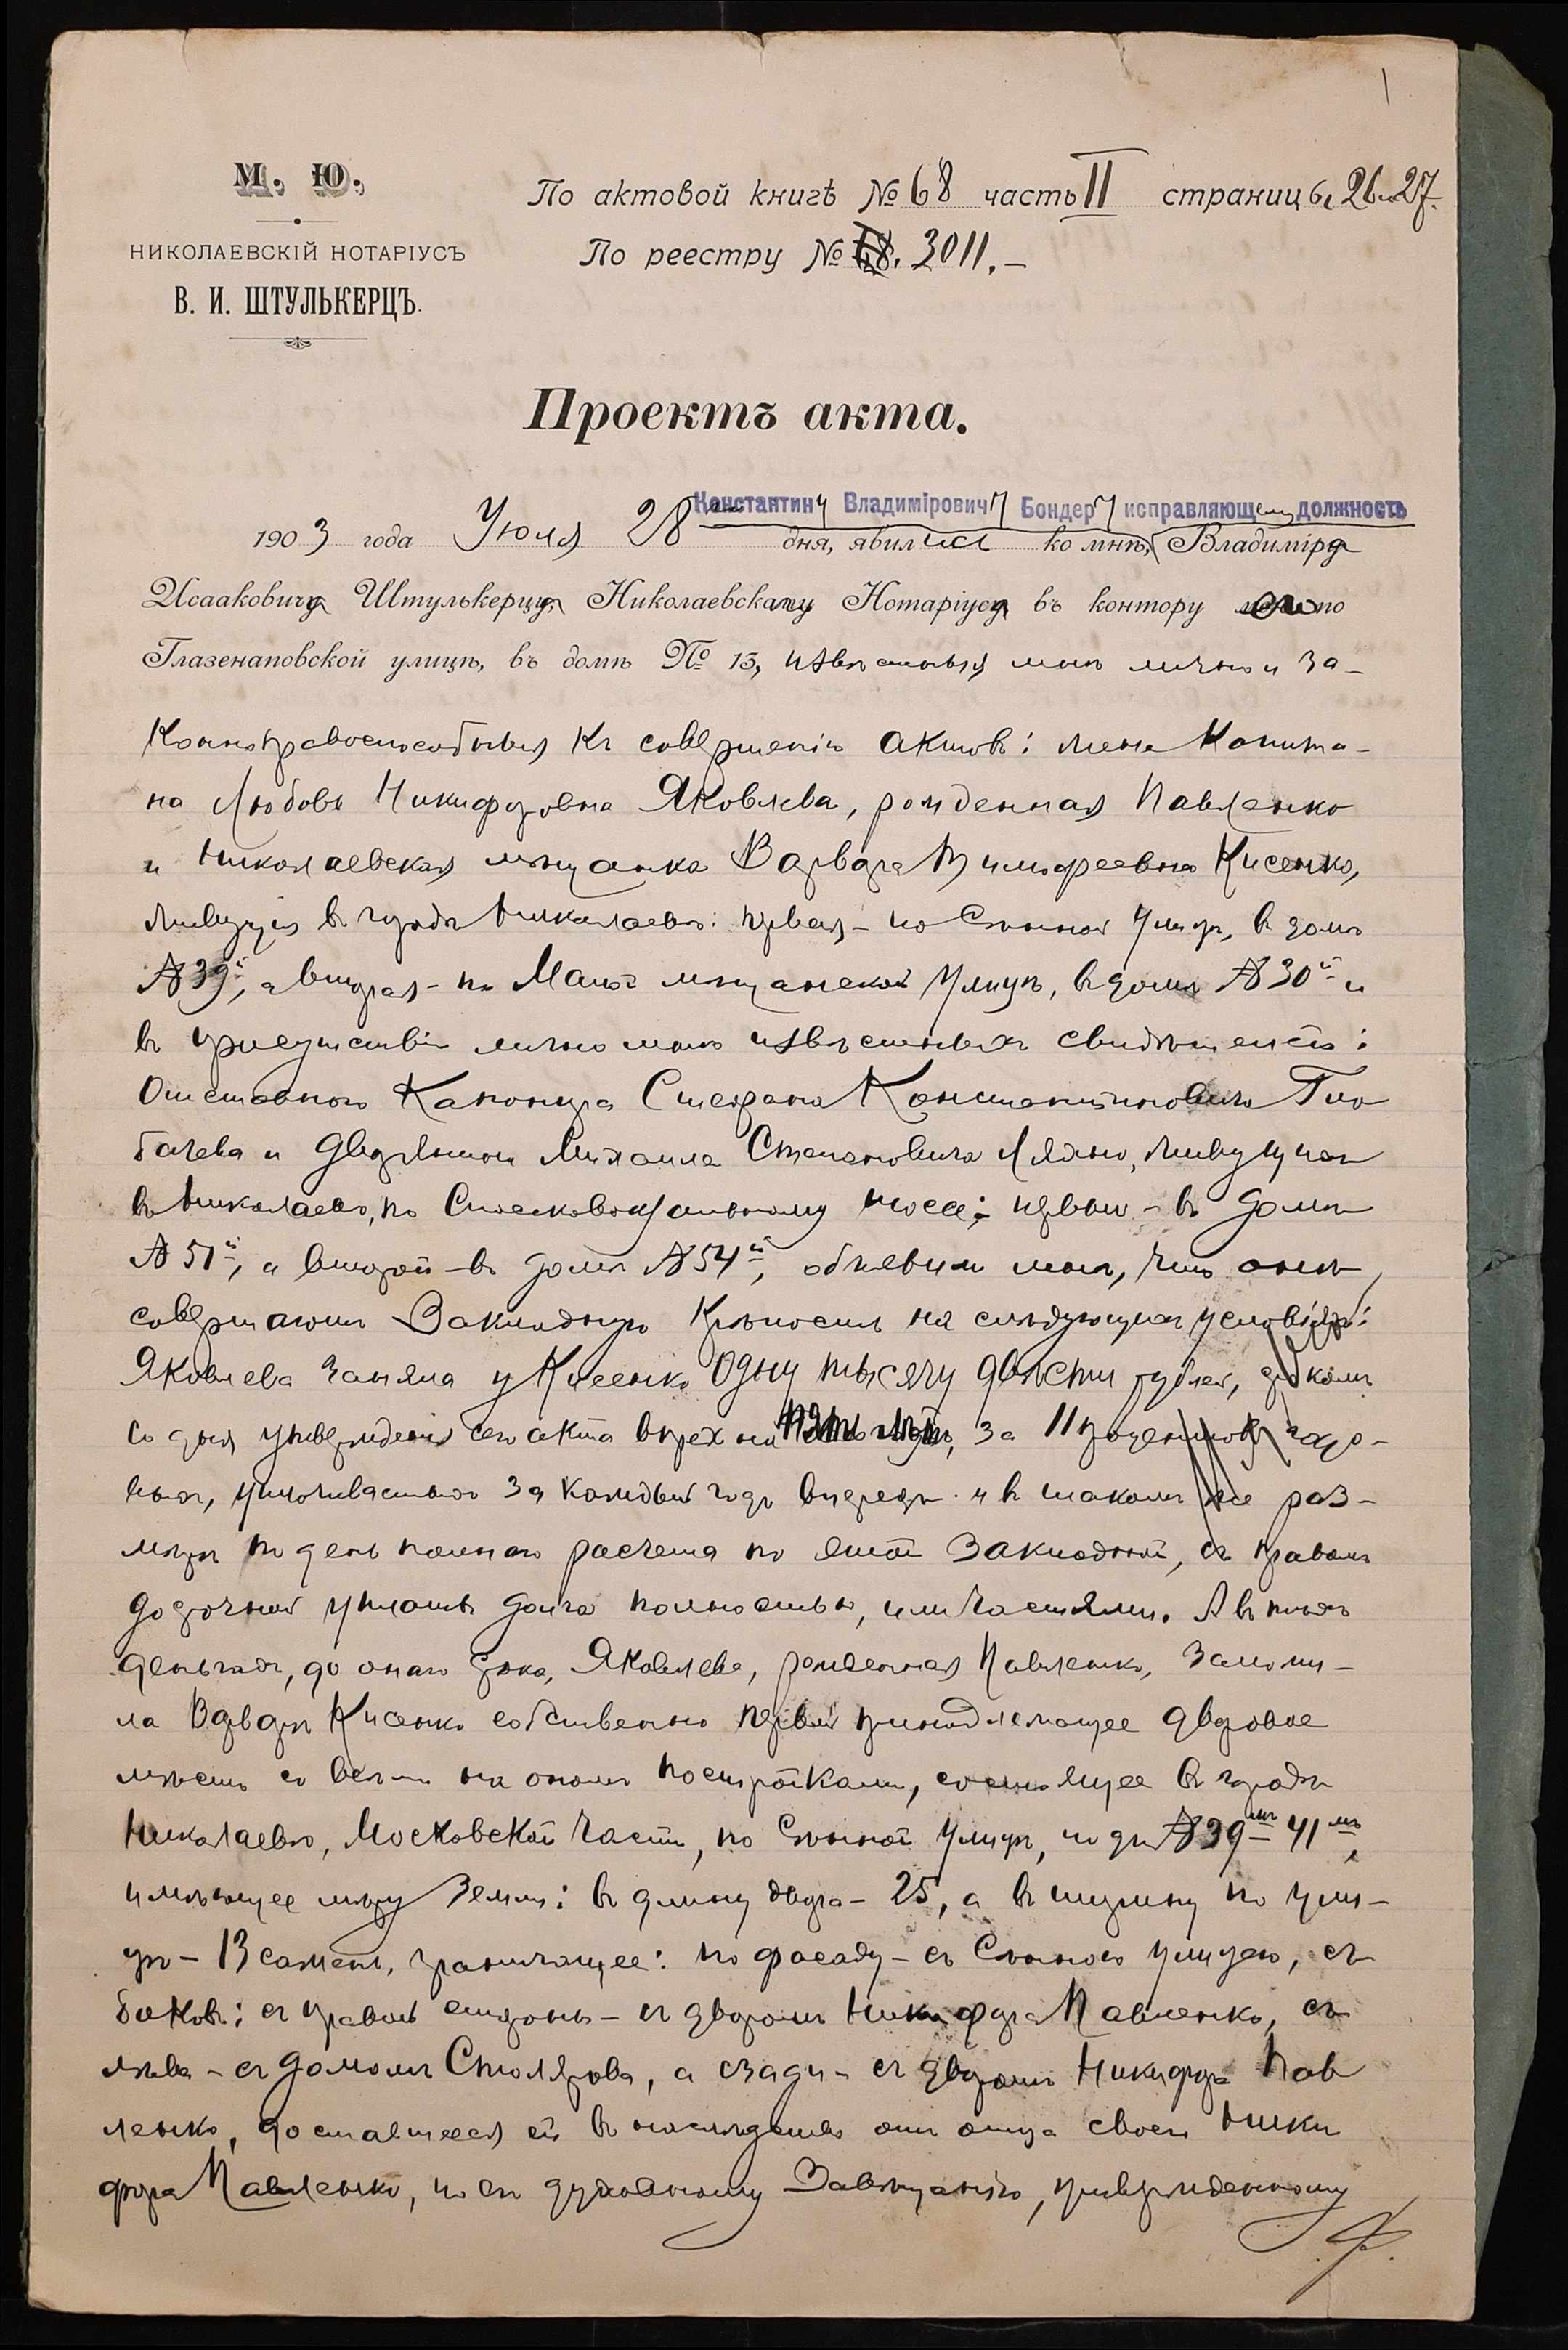 1
М. Ю.
НИКОЛАЕВСКІЙ НОТАРІУСЪ
В. И. ШТУЛЬКЕРЦЪ.
По актовой книгѣ № 68 часть II страницы 26 и 27.
По реестру № 68. 3011.–
Проектъ акта.
Константину Владиміровичу Бондеру исправляющему должность
1903 года Іюля 28 дня, явились ко мнѣ, Владиміра
Исааковича Штулькерца, Николаевскаго Нотаріуса въ контору его по
Глазенаповской улицѣ, въ домѣ № 13, извѣстныя мнѣ лично и за-
коннοправоспособныя къ совершенію актовъ: жена Капита-
на Любовь Никифоровна Яковлева, рожденная Павленко
и Николаевская мѣщанка Варвара Тимофеевна Кисенко,
живущія въ городѣ Николаевѣ: первая – по Сѣнной улицѣ, въ домѣ
№ 39й, а вторая – по Малой мѣщанской улицѣ, въ домѣ № 30й и
въ присутствіи лично мнѣ извѣстныхъ свидѣтелей:
Отставного Канонира Стефана Константиновича
и дворянина Михаила Степановича живущихъ
въ Николаевѣ, по шоссе: первый – въ домѣ
№ 51й, а второй – въ домѣ № 54й, объявили мнѣ, что онѣ
совершаютъ Закладную Крѣпость на слѣдующихъ условіяхъ:
Яковлева заняла у Кисенко одну тысячу двѣсти рублей, срокомъ
со дня утвержденія сего акта впредь на за 11 процентовъ годо-
выхъ, уплачиваемыхъ за каждый годъ впередъ и въ такомъ же раз-
мѣрѣ по день полнаго расчета по этой закладной, съ правомъ
досрочной уплаты долга полностью, или частями. А въ тѣхъ
деньгахъ, до онаго срока, Яковлева, рожденная Павленко, заложи-
ла Варварѣ Кисенко собственно первой принадлежащее дворовое
мѣсто со всѣми на ономъ постройками, состоящее въ городѣ
Николаевѣ, Московской части, по Сѣнной улицѣ, подъ № 39мъ 41мъ,
имѣющее мѣру земли: въ длину двора – 25, а въ ширину по ули-
цѣ – 13 сажень, граничащее: по фасаду – съ Сѣнною улицею, съ
боковъ: съ правой стороны – съ дворомъ Никифора Павленко, съ
лѣва – съ домомъ Столярова, а сзади – съ дворомъ Никифора Пав
ленко, доставшееся ей въ наслѣдство отъ отца своего Ники
фора Павленко, по его духовному Завѣщанію, утвержденному